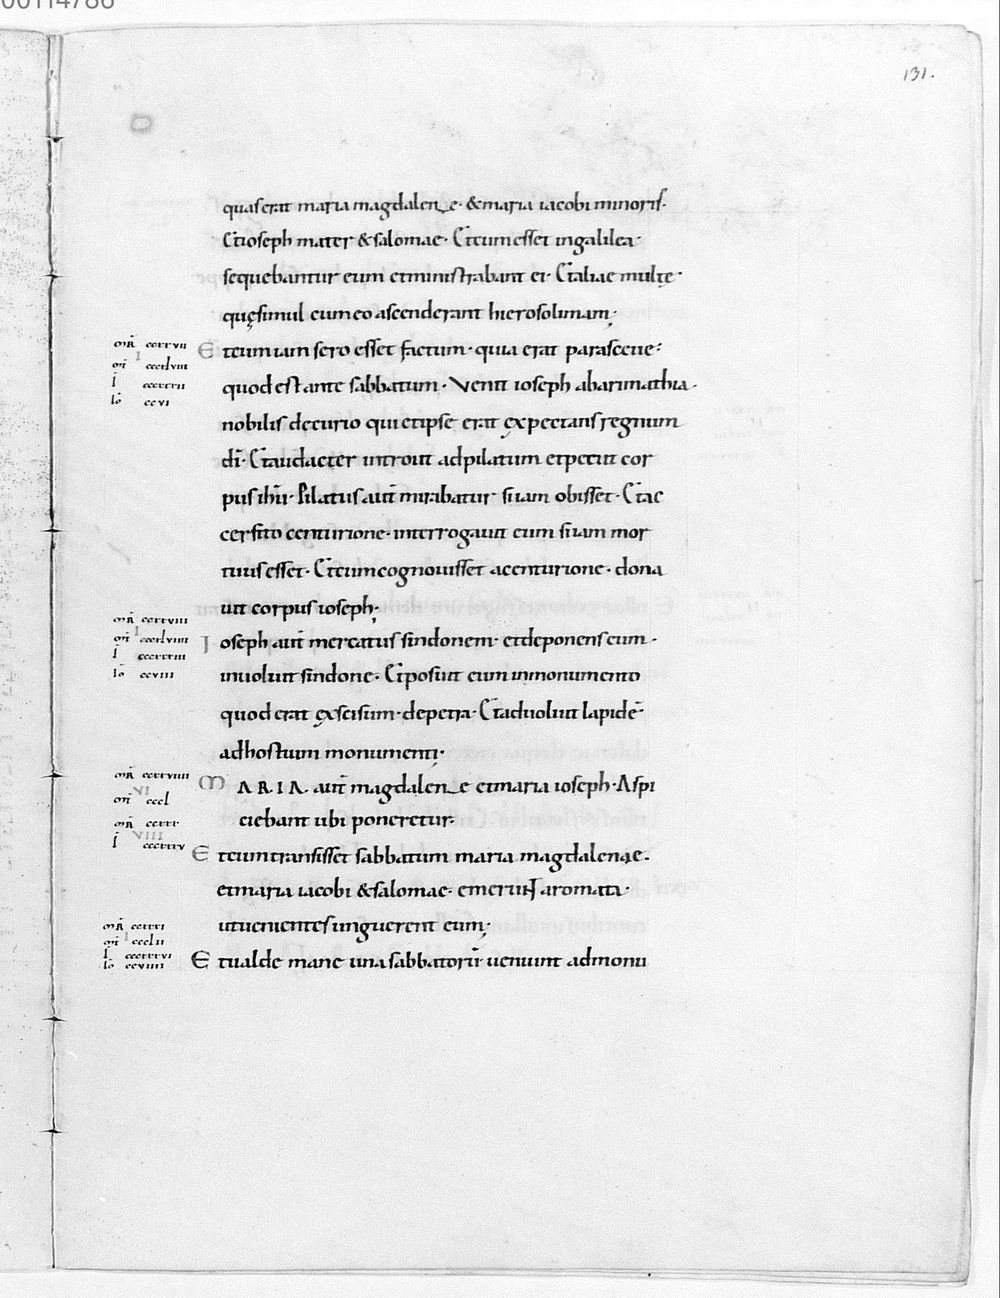 00114786
131.
quas erat maria magdalenę· & maria iacobi minoris·
Et ioseph mater & salomae· Et cum esset in galilea·
sequebantur eum et ministrabant ei· Et aliae multę·
quę simul cum eo ascenderant hierosolimam;
mr̄ ccxxvii
E t cum iam sero esset factum· quia erat parasceue:
quod est ante sabbatum· Venit ioseph ab arimathia·
lo ccvi
nobilis decurio qui et ipse erat expectans regnum
dī· Et audacter introiit ad pilatum et petiit cor
pus ihū· Pilatus aut̄ mirabatur si iam obisset· Et ac
cersito centurione· interrogauit eum si iam mor
tuus esset· Et cum cognouisset a centurione· dona
uit corpus ioseph;
mr̄ ccxxviii
I oseph aut̄ mercatus sindonem· et deponens eum·
lo ccviii
inuoluit sindone· Et posuit eum in monumento
quod erat excisum· de petra· Et aduoluit lapidē·
ad hostium monumenti·
mr̄ ccxxviiii
M ARIA aut̄ magdalenę et maria ioseph· Aspi
mt̄ cccl
ciebant ubi poneretur·
mr̄ ccxxx
VIII
E t cum transisset sabbatum maria magdalenae·
et maria iacobi & salomae· emerunt aromata·
ut uenientes unguerent eum;
mr̄ ccxxxi
mt̄ ccclii
lo ccviiii
E t ualde mane una sabbatorū ueniunt ad monu